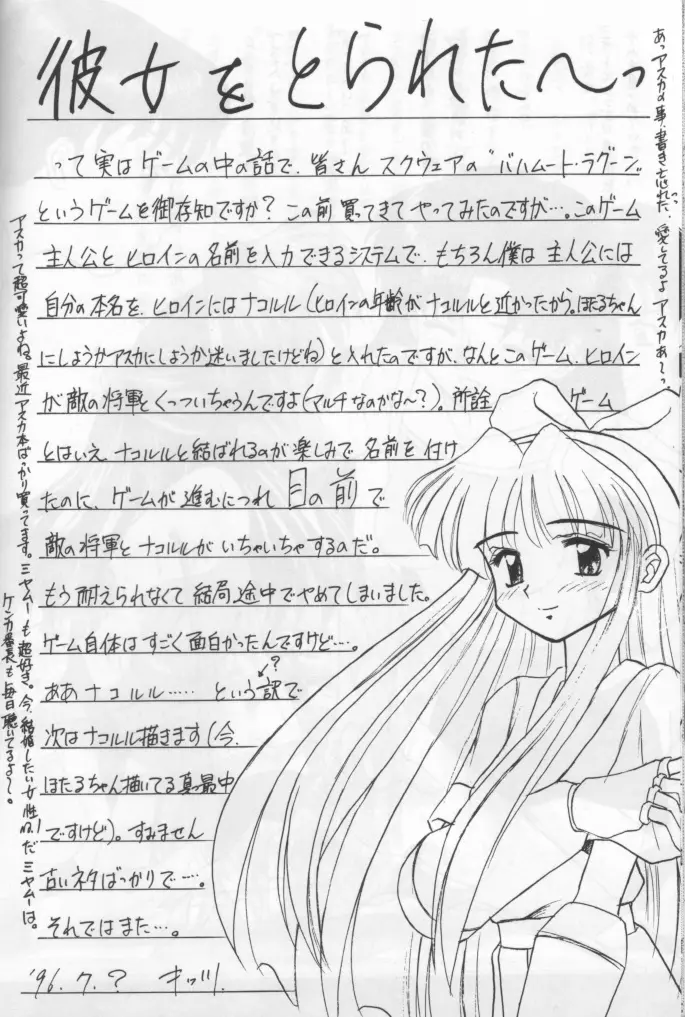 彼女をとられた〜っ
って実はゲームの中の話で、皆さん スクウェアの“バハムート・ラグーン”
というゲームを御存知ですか? この前 買ってきて やってみたのですが…。このゲーム
主人公と ヒロインの名前を入力できるシステムで、もちろん僕は 主人公には
自分の本名を、ヒロインにはナコルル(ヒロインの年齢が ナコルルと近かったから。ほたるちゃん
にしようかアスカにしようか迷いましたけどね)と入れたのですが、なんとこのゲーム、ヒロイン
が敵の将軍とくっついちゃうんですよ(マルチなのかな〜?)。所詮 ゲーム
とはいえ、ナコルルと結ばれるのが楽しみで 名前を 付け
たのに、ゲームが 進むにつれ 目の前で
敵の将軍と ナコルルが いちゃいちゃするのだ。
もう耐えられなくて 結局途中でやめてしまいました。
ゲーム自体は すごく面白かったんですけど…。
ああ ナコルル…… という訳で
?
次は ナコルル描きます(今、
ほたるちゃん描いてる真っ最中
ですけど)。すみません
古いネタばっかりで…。
それではまた…。
'96.7.?
あっアスカの事、書き忘れたっ、愛してるよ アスカぁ〜っ
アスカって超可愛いよね。最近アスカ本ばっかり買ってます。ミヤムーも超好き。今、結婚したい女性No.1だ ミヤムーは。
ケンカ番長も毎日聴いてるよ〜。